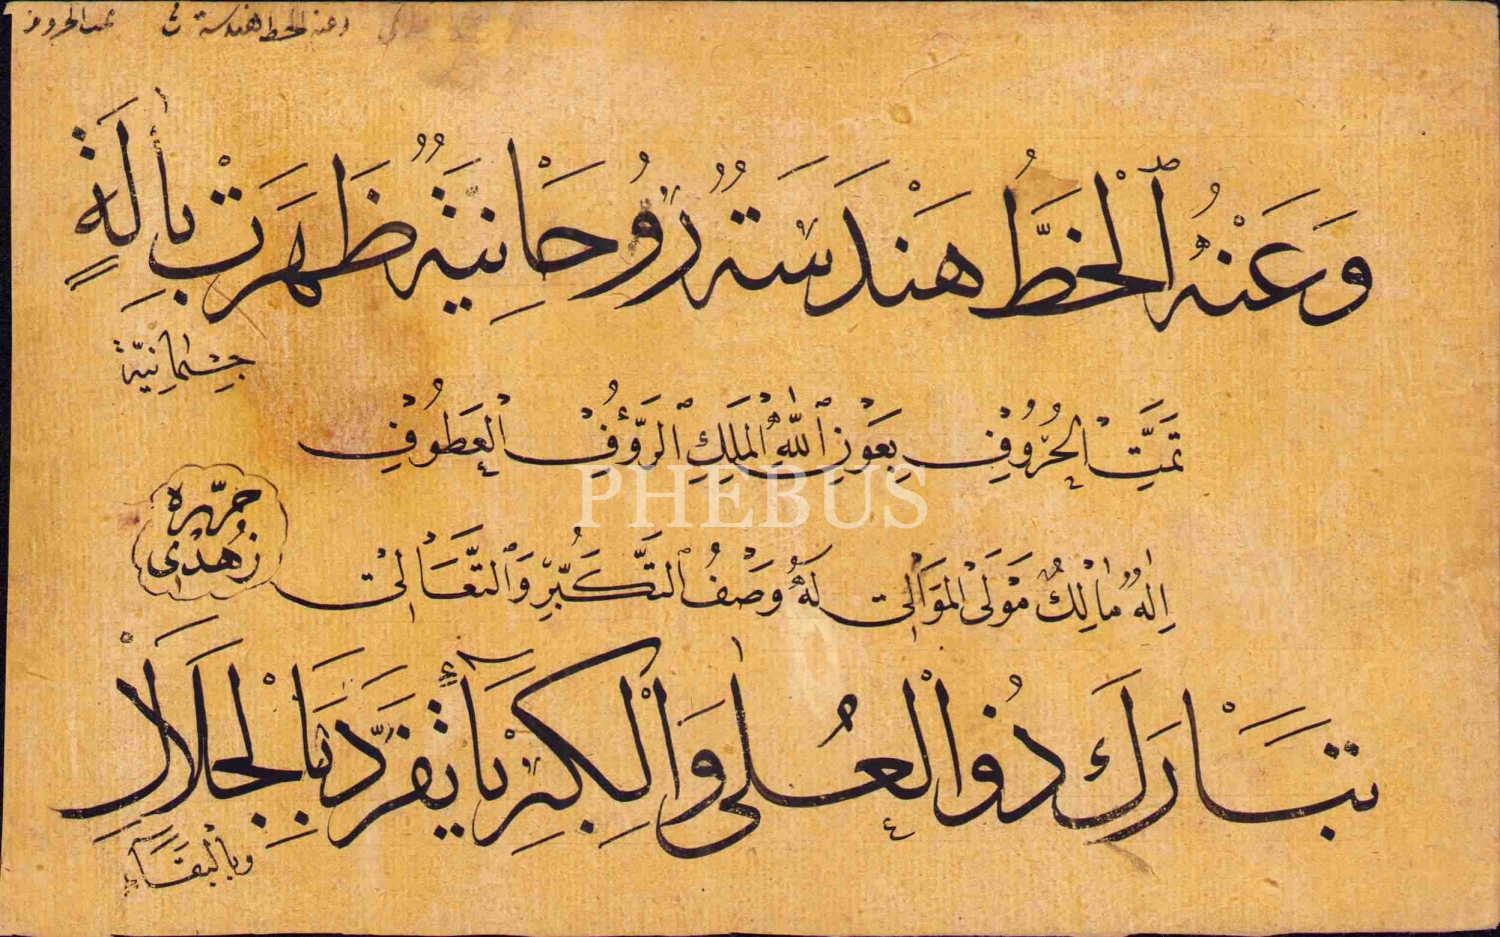 وعنه الخط هندسة تمت الحروف
وَعَنْهُ ٱلْخَطُّ هَنْدَسَةٌ رُوحَانِيَّةٌ ظَهَرَتْ بِأٰلَةٍ
جِسْمَانِيَّة
تَمَّتِ الْحُرُوفِ بِعَوْنِ ٱللّٰهِ الْمَلِكِ ٱلرَّؤُفِ الْعَطُوفِ
PHEBUS
حمزه زُهْدِى
اِلٰهٌ مٰالِكٌ مَوْلَى الْمَوَالِى لَهُ وَصْفُ ٱلتَّكَبُّرِ وَٱلتَّعَالِى
تَبَارَكَ ذُو الْعُلٰى وَالْكِبْرِيَآءِ تَفَرَّدَ بِالْجَلَالِ
وبالْبَقَآءِ